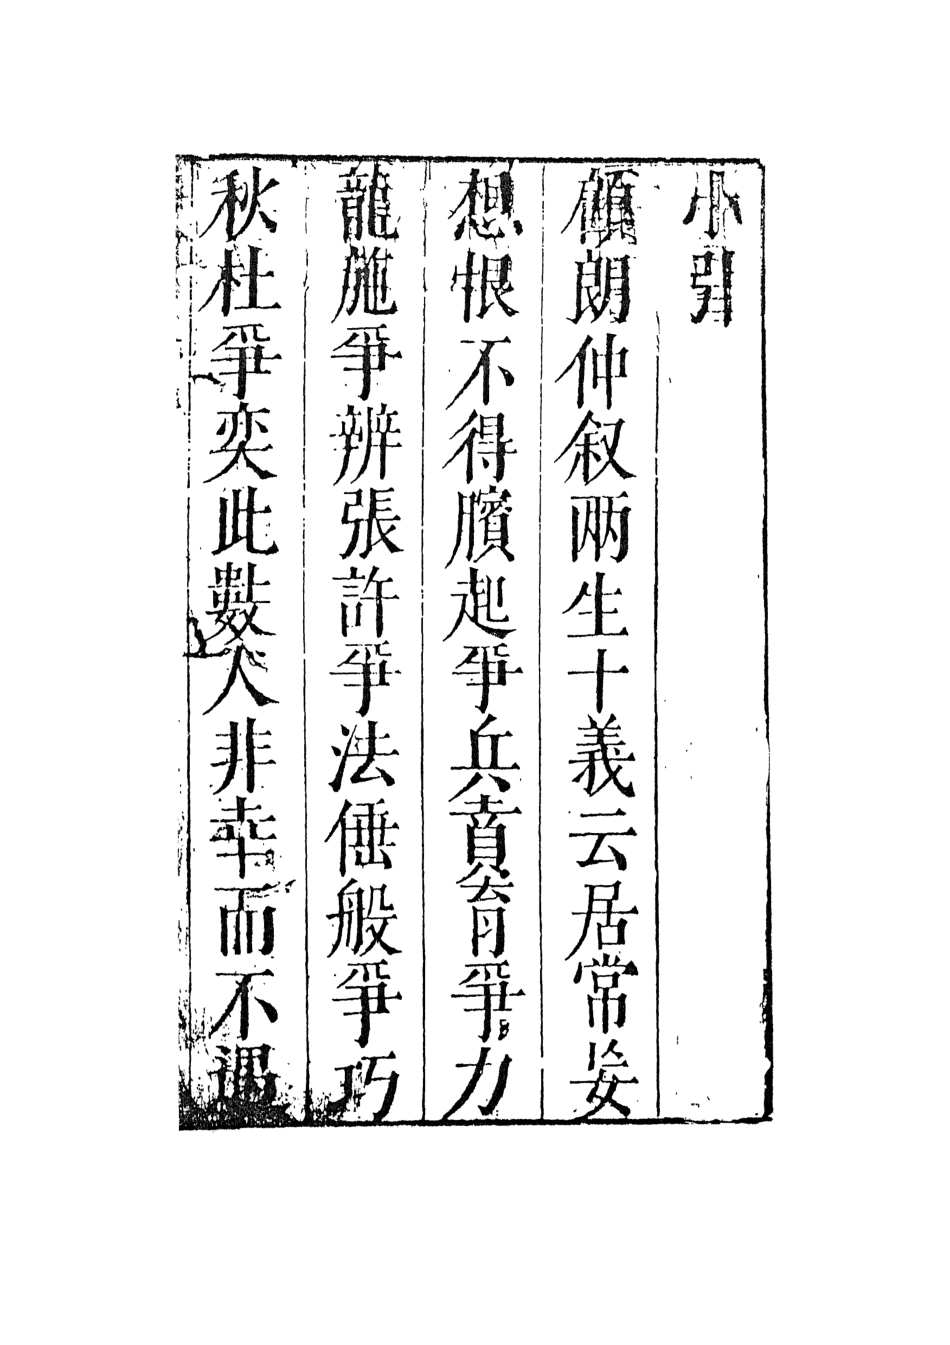 小引
顧朗仲叙两生十義云居常妄
想恨不得臏起爭兵賁育爭力
龍施爭辨張許爭法倕般爭巧
秋杜爭奕此數人非幸而不遇